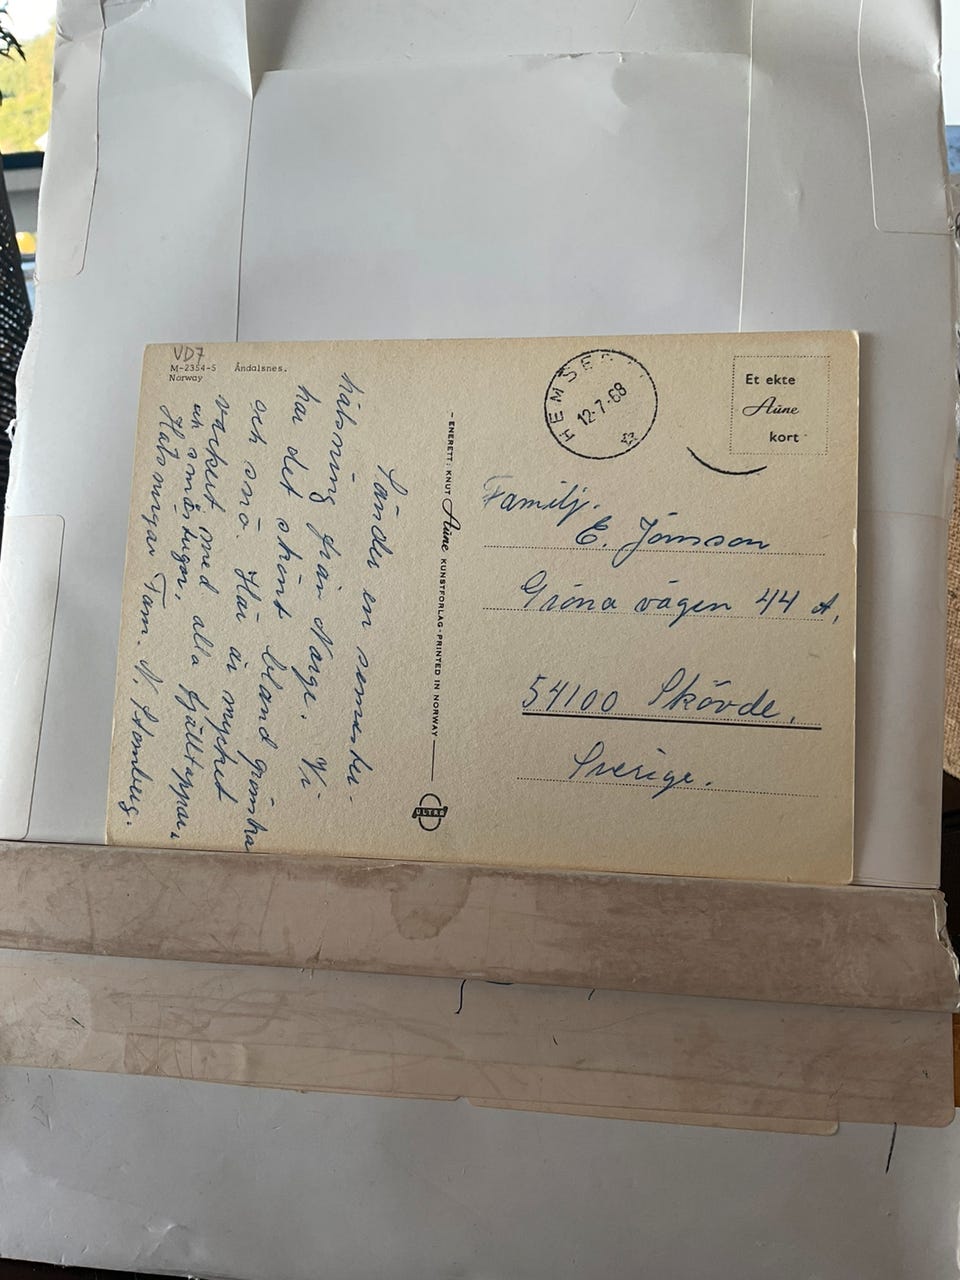 VD7
M-2354-5 Åndalsnes.
Norway
Sänder en semester-
hälsning från Norge. Vi
har det skönt bland grönska
och snö. Här är mycket
vackert med alla fjälltoppar,
och småstugor.
Hälsningar Fam. N. Stomberg.
- ENERETT: KNUT Aune KUNSTFORLAG - PRINTED IN NORWAY
ULTRA
HEMSE
12-7-68
Et ekte
Aune
kort
Familj.
E. Jönsson
Gröna vägen 44 A,
54100 Skövde.
Sverige.